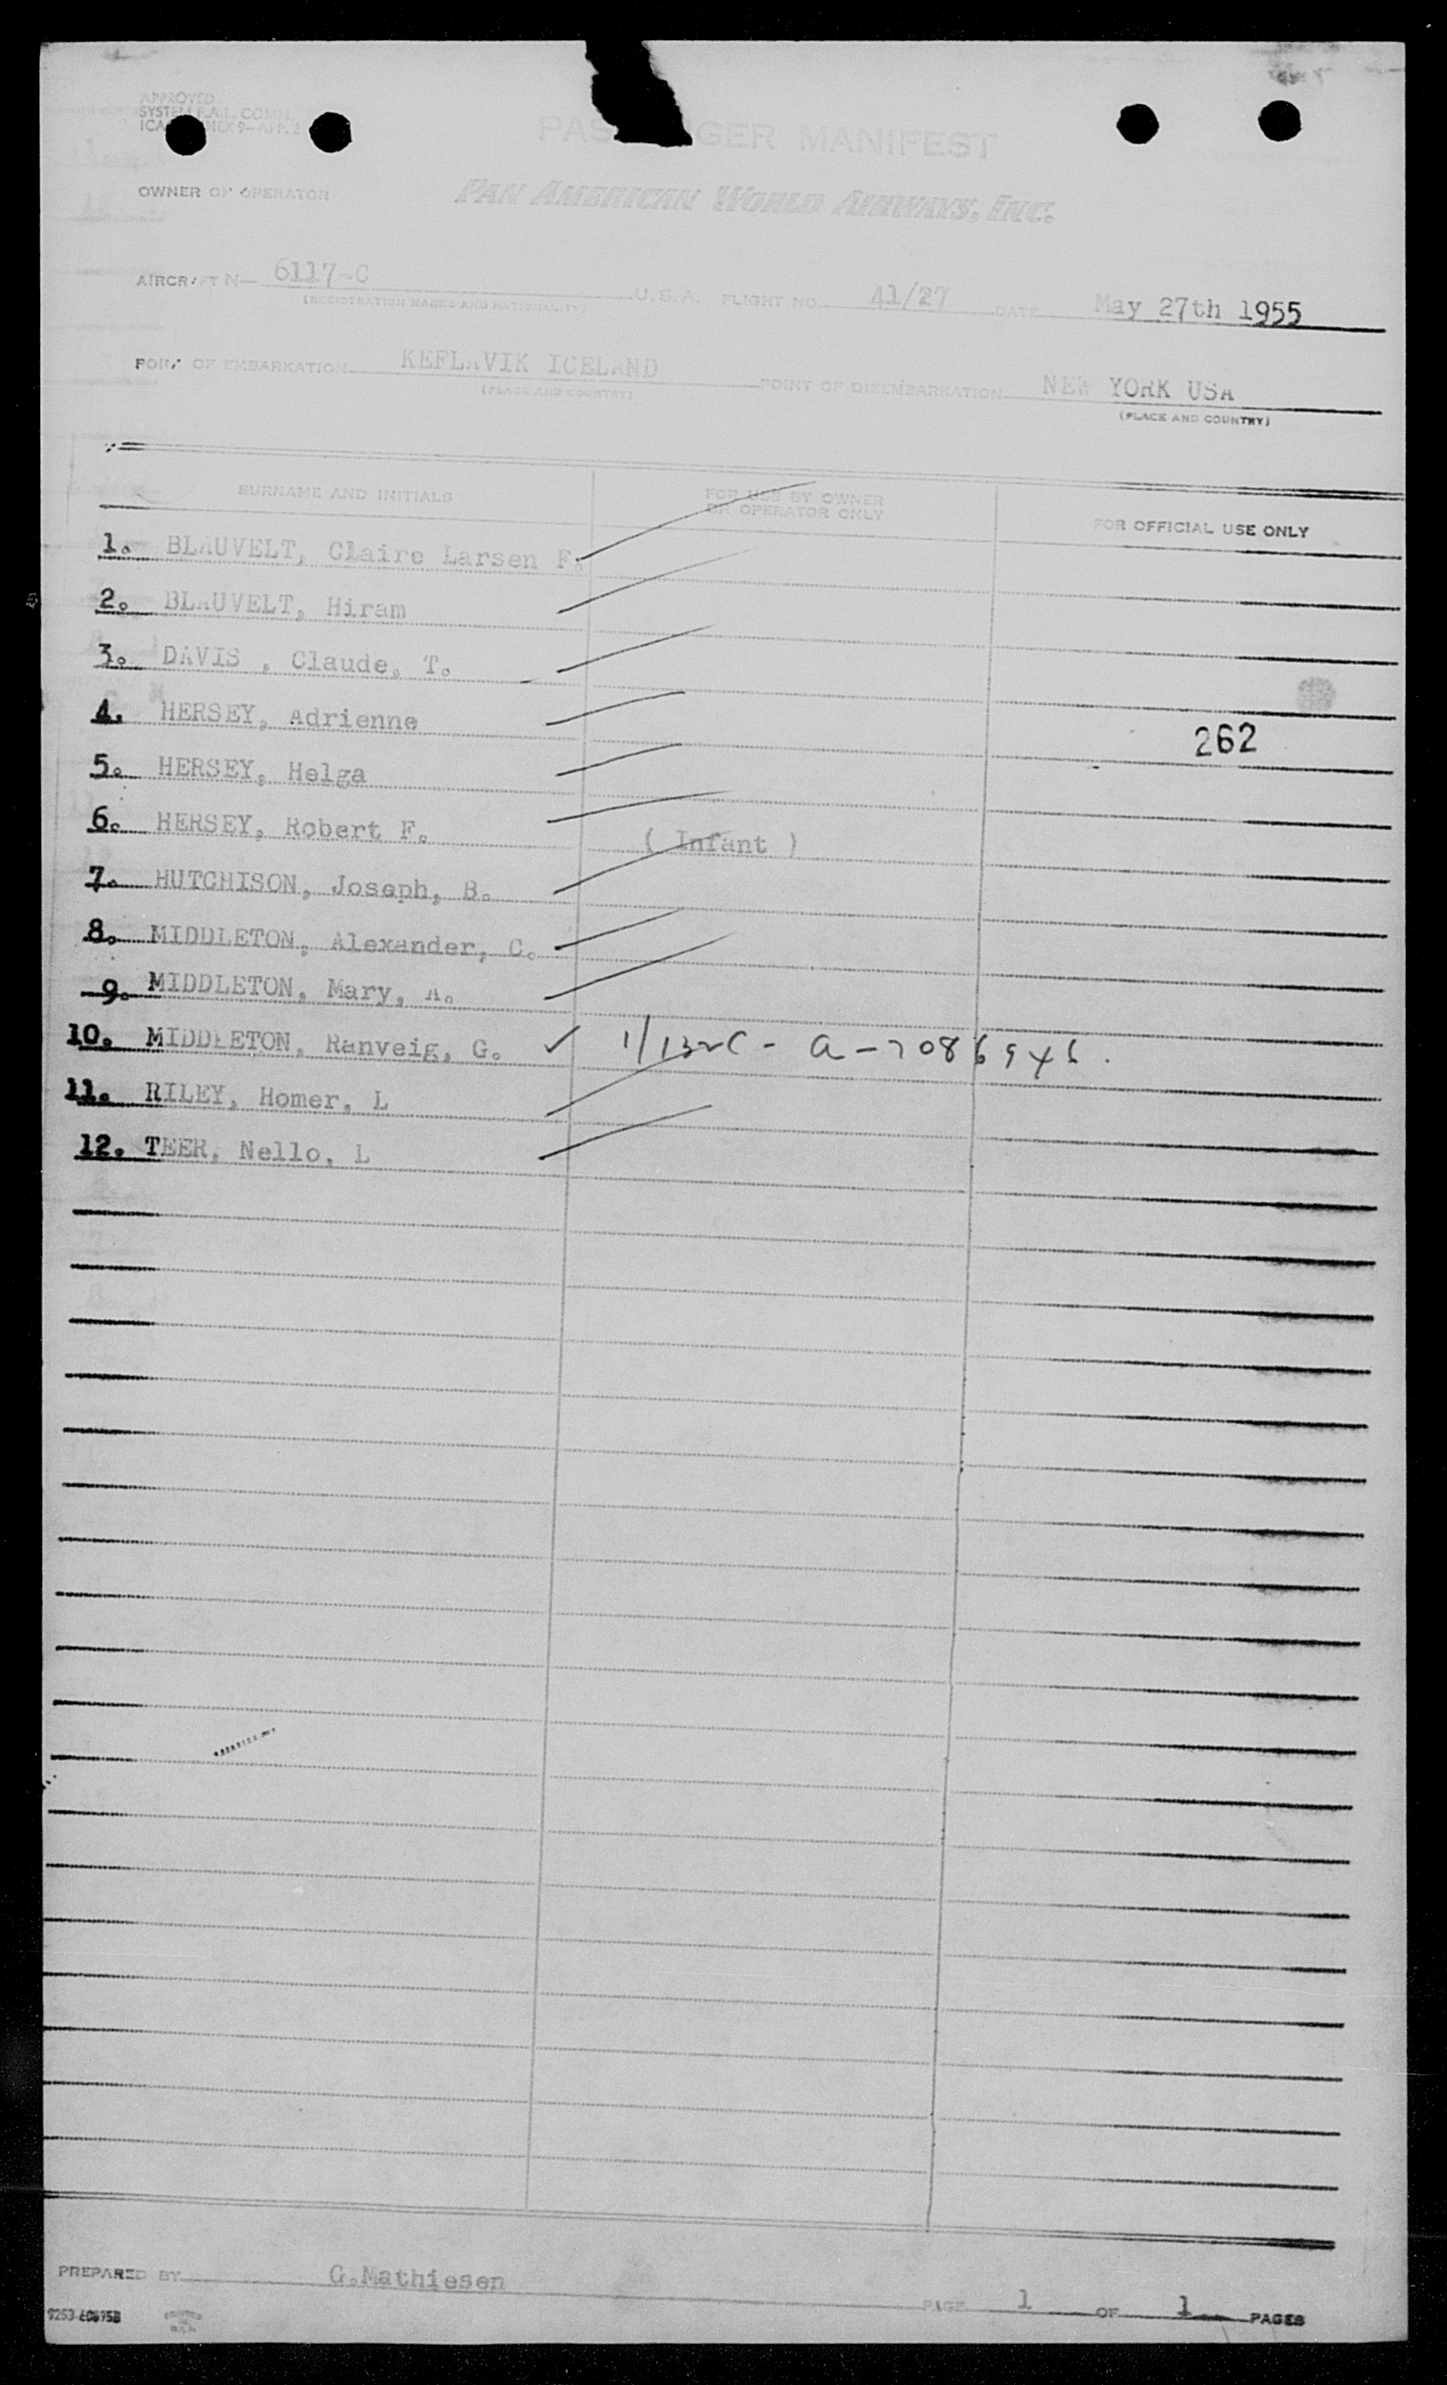 APPROVED
SYSTEM F.A.L. COMM.
PASSENGER MANIFEST
OWNER OR OPERATOR PAN AMERICAN WORLD AIRWAYS, INC.
AIRCRAFT N— 6117-C U.S.A. FLIGHT NO. 41/27 DATE May 27th 1955
(REGISTRATION MARKS AND NATIONALITY)
PORT OF EMBARKATION KEFLAVIK ICELAND POINT OF DISEMBARKATION NEW YORK USA
(PLACE AND COUNTRY) (PLACE AND COUNTRY)
SURNAME AND INITIALS FOR USE BY OWNER OR OPERATOR ONLY FOR OFFICIAL USE ONLY
1. BLAUVELT, Claire Larsen F.
2. BLAUVELT, Hiram
3. DAVIS , Claude, T.
4. HERSEY, Adrienne
262
5. HERSEY, Helga
6. HERSEY, Robert F. ( Infant )
7. HUTCHISON, Joseph, B.
8. MIDDLETON, Alexander, C.
9. MIDDLETON, Mary, A.
10. MIDDLETON, Ranveig, G. ✓ a-7086946.
11. RILEY, Homer, L
12. TEER, Nello, L
PREPARED BY G.Mathiesen
PAGE 1 OF 1 PAGES